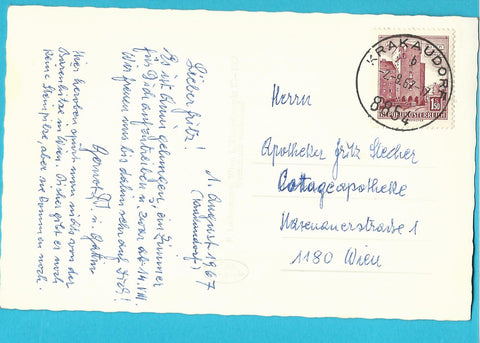 1. August 1967
(Krakaudorf)
Lieber Fritz!
Es ist bereits gelungen, ein Zimmer
für Dich aufzutreiben u. zwar ab 14. VIII.
Wir freuen uns bis dahin sehr auf Dich!
Gernot u. Gattin
Hier heroben spürt man nichts von der
Bärenhitze in Wien. Bisher gibt es noch
keine Steinpilze, aber sie kommen noch.
KRAKAUDORF
b
-2.-8.67
8854
REPUBLIK ÖSTERREICH
Herrn
Apotheker Fritz Stecher
Cottageapotheke
Hasenauerstraße 1
1180 Wien